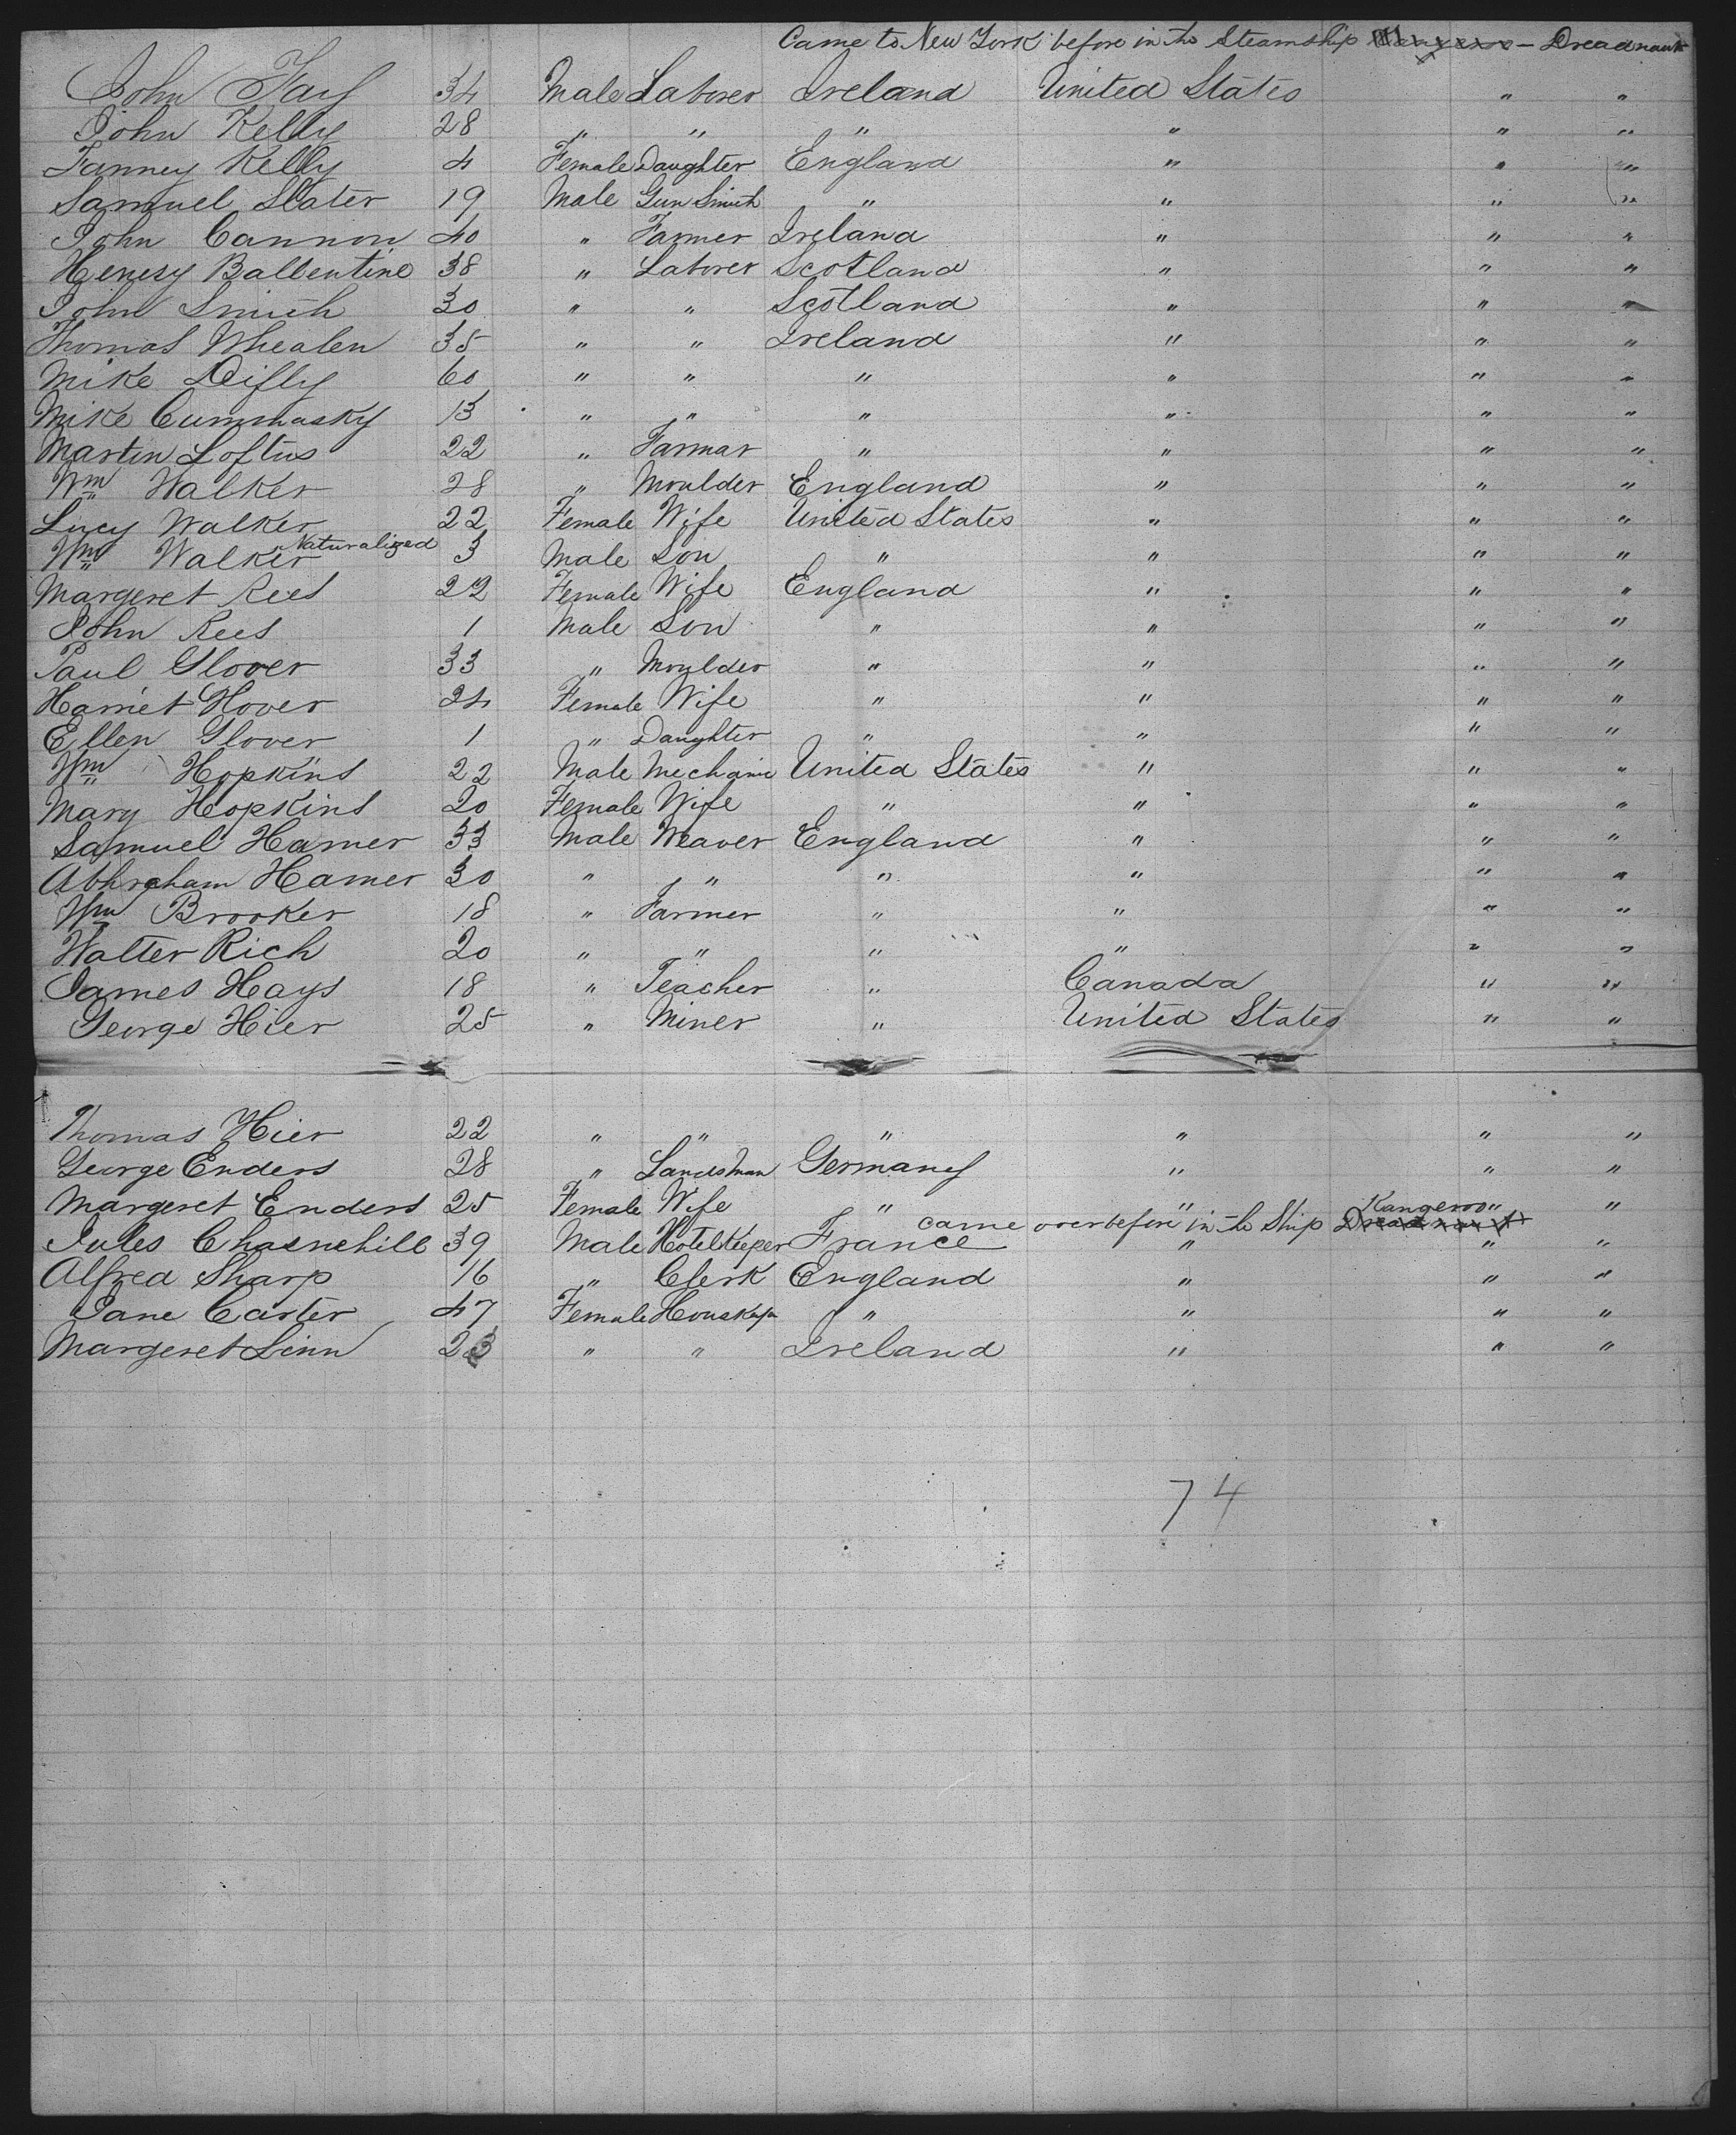 Came to New York before in the Steamship - Dreadnaut
John Fay 34 Male Laborer Ireland United States " "
John Kelly 28 " " " " " "
Fanney Kelly 4 Female Daughter England " " "
Samuel Slater 19 Male Gun Smith " " " "
John Cannon 40 " Farmer Ireland " " "
Henery Ballentine 38 " Laborer Scotland " " "
John Smith 30 " " Scotland " " "
Thomas Whealen 35 " " Ireland " " "
Mike Difly 60 " " " " " "
Mike Cummasky 13 " " " " " "
Martin Loftus 22 " Farmar " " " "
Wm Walker 28 " Moulder England " " "
Lucy Walker 22 Female Wife United States " " "
Wm Walker Naturalized 3 Male Son " " " "
Margeret Rees 22 Female Wife England " " "
John Rees 1 Male Son " " " "
Paul Glover 33 " Moulder " " " "
Harriet Glover 24 Female Wife " " " "
Ellen Glover 1 " Daughter " " " "
Wm Hopkins 22 Male Mechanic United States " " "
Mary Hopkins 20 Female Wife " " " "
Samuel Hamer 33 Male Weaver England " " "
Abhraham Hamer 30 " " " " " "
Wm Brooker 18 " Farmer " " " "
Walter Rich 20 " " " " " "
James Hays 18 " Teacher " Canada " "
George Hier 25 " Miner " United States " "
Thomas Hier 22 " " " " " "
George Enders 28 " Landsman Germany " " "
Margeret Enders 25 Female Wife " " " "
came over before in the Ship Dreadnaut Kangeroo
Jules Chasnehill 39 Male Hotel Keeper France " " "
Alfred Sharp 16 " Clerk England " " "
Jane Carter 47 Female Houskep " " " "
Margeret Linn 23 " " Ireland " " "
74